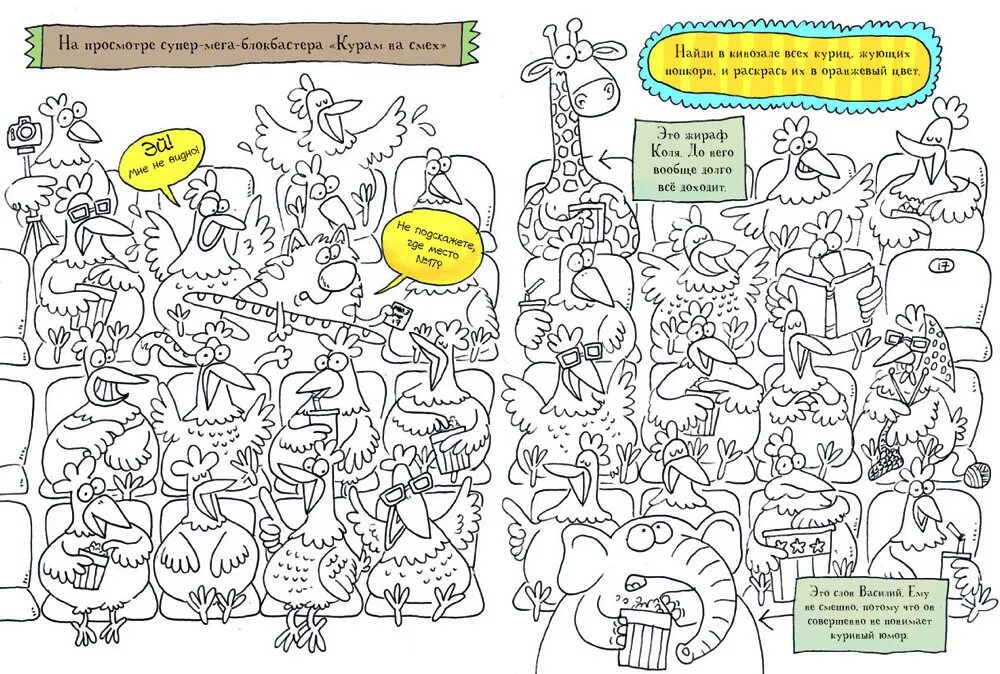 На просмотре супер-мега-блокбастера «Курам на смех»
Найди в кинозале всех куриц, жующих
попкорн, и раскрась их в оранжевый цвет.
ЭЙ!
Мне не видно!
Это жираф
Коля. До него
вообще долго
всё доходит.
Не подскажете,
где место
№17?
17
17
Это слон Василий. Ему
не смешно, потому что он
совершенно не понимает
куриный юмор.